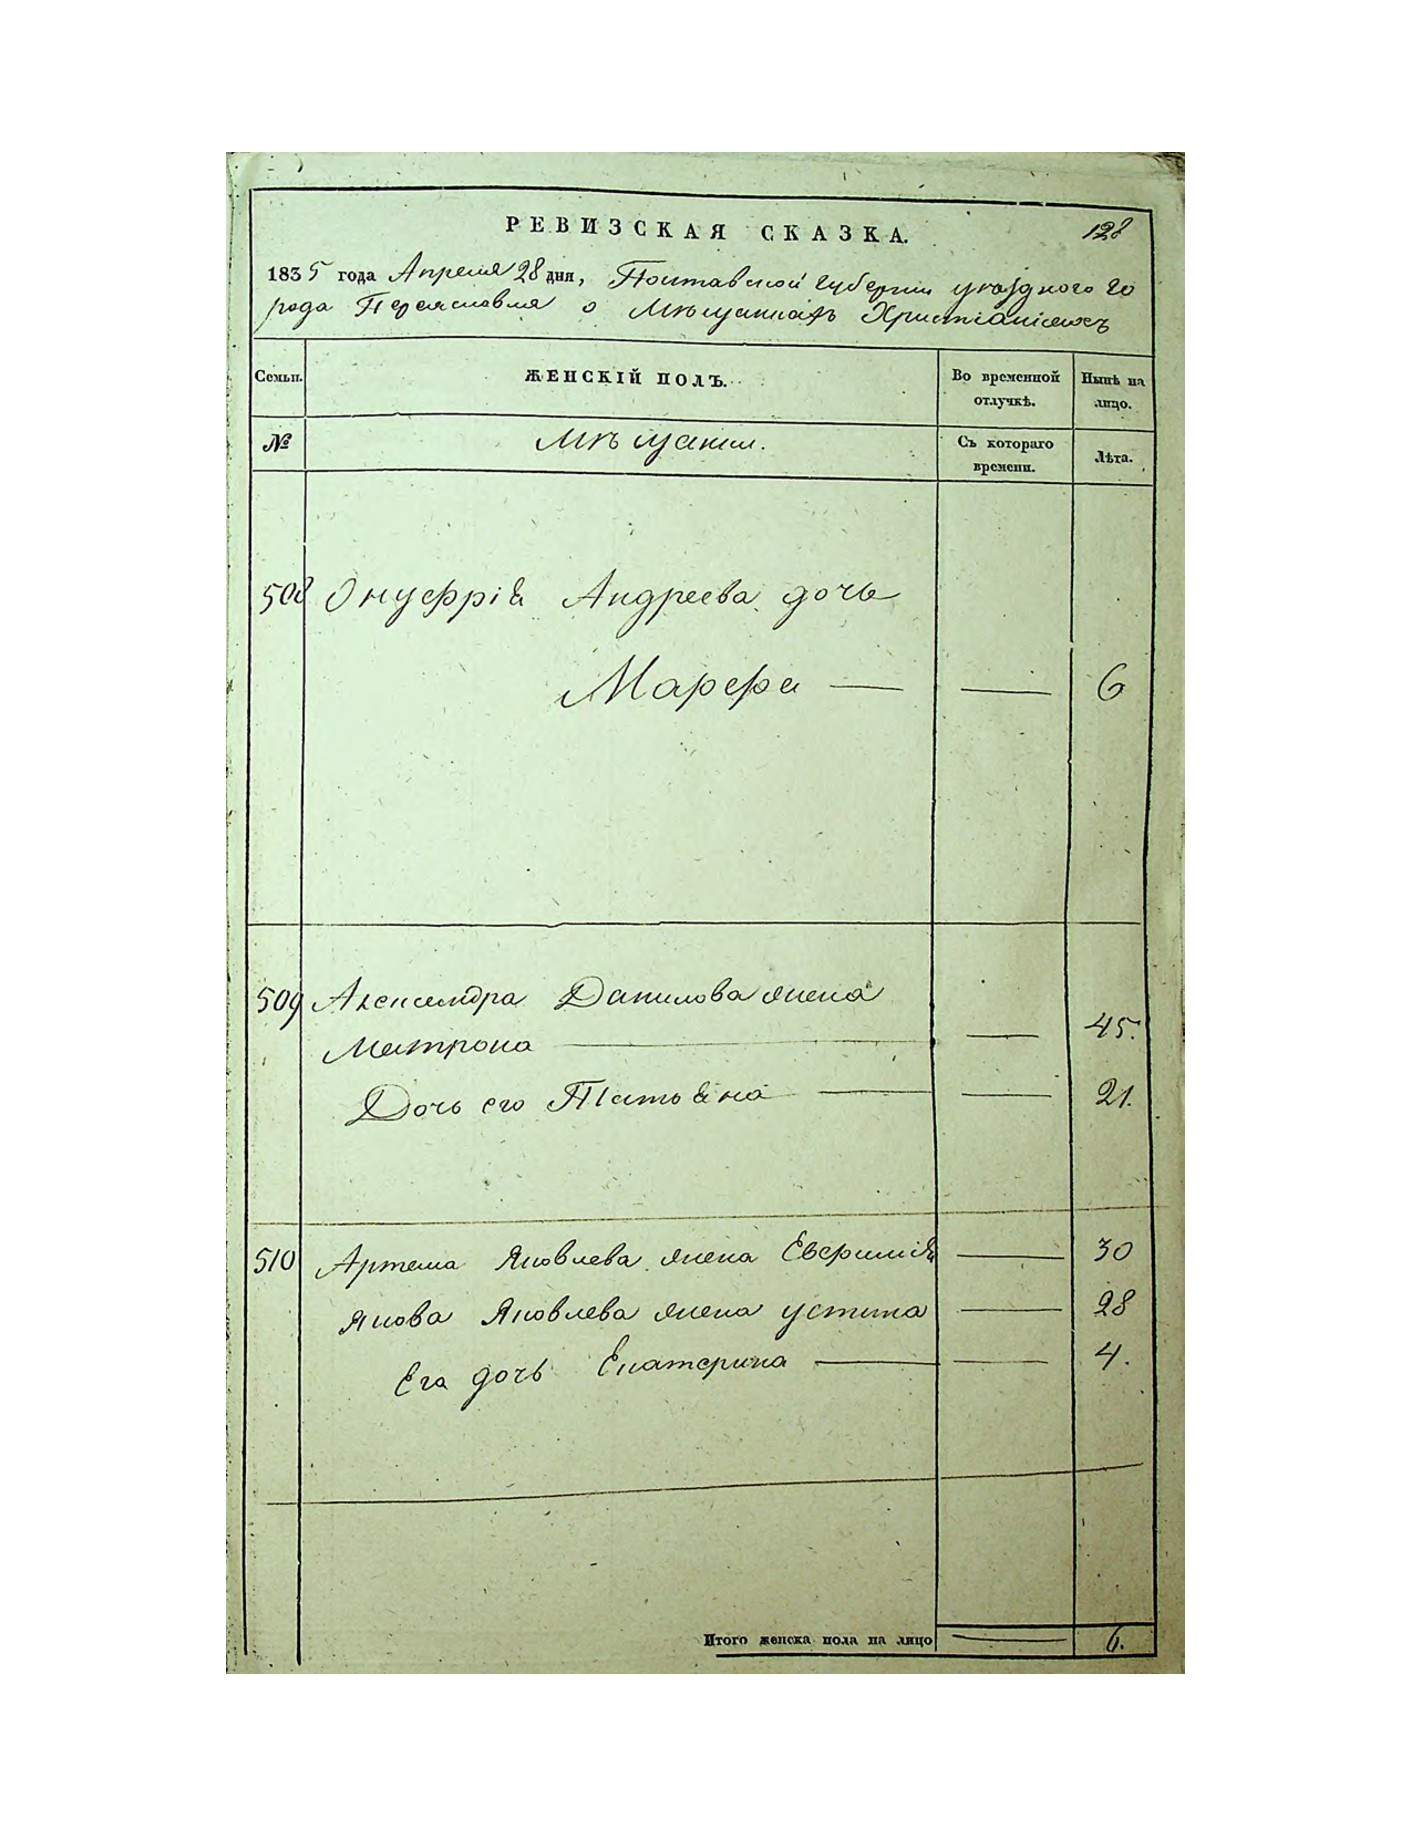 РЕВИЗСКАЯ СКАЗКА.
128
1835 года Апреля 28 дня, Полтавской губернии уезднаго го
рода Переяславля о Мѣщанахъ Христіанехъ
Семьи.
ЖЕНСКІЙ ПОЛЪ.
Во временной
отлучкѣ.
Нынѣ на
лицо.
№
Мѣщани.
Съ котораго
времени.
Лѣта.
508 Онуфрія Андреева дочь
Марфа — — 6
509 Александра Данилова жена
Матрона — — 45.
Дочь его Татьяна — — 21.
510 Артема Яковлева жена Евфимія — 30
Якова Яковлева жена Устина — 28
Его дочь Екатерина — — 4.
Итого женска пола на лицо — 6.